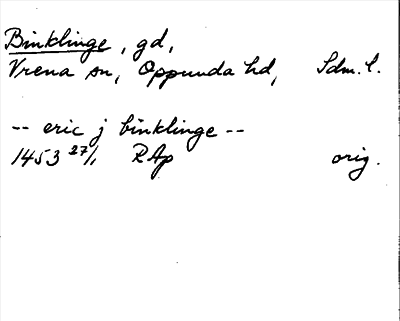 Binklinge, gd,
Vrena sn, Oppunda hd, Sdm. l.
-- eric j binklinge --
1453 27/1 RAp orig.